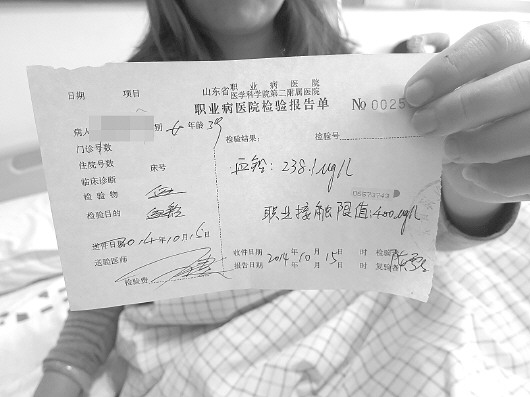 日期 项目
山东省职业病医院
医学科学院第二附属医院
职业病医院检验报告单 No 0025
病人 别 女 年龄 39
门诊号数
检验结果: 检验号
住院号数 床号
血铅: 238.1μg/L
临床诊断
检验物 血
检验目的 血铅
职业接触限值: 400μg/L
收件日期 2014年10月15日
收件日期 2014年10月15日 时 检验
送验医师
报告日期 年 月 日 时 复验者
检验费